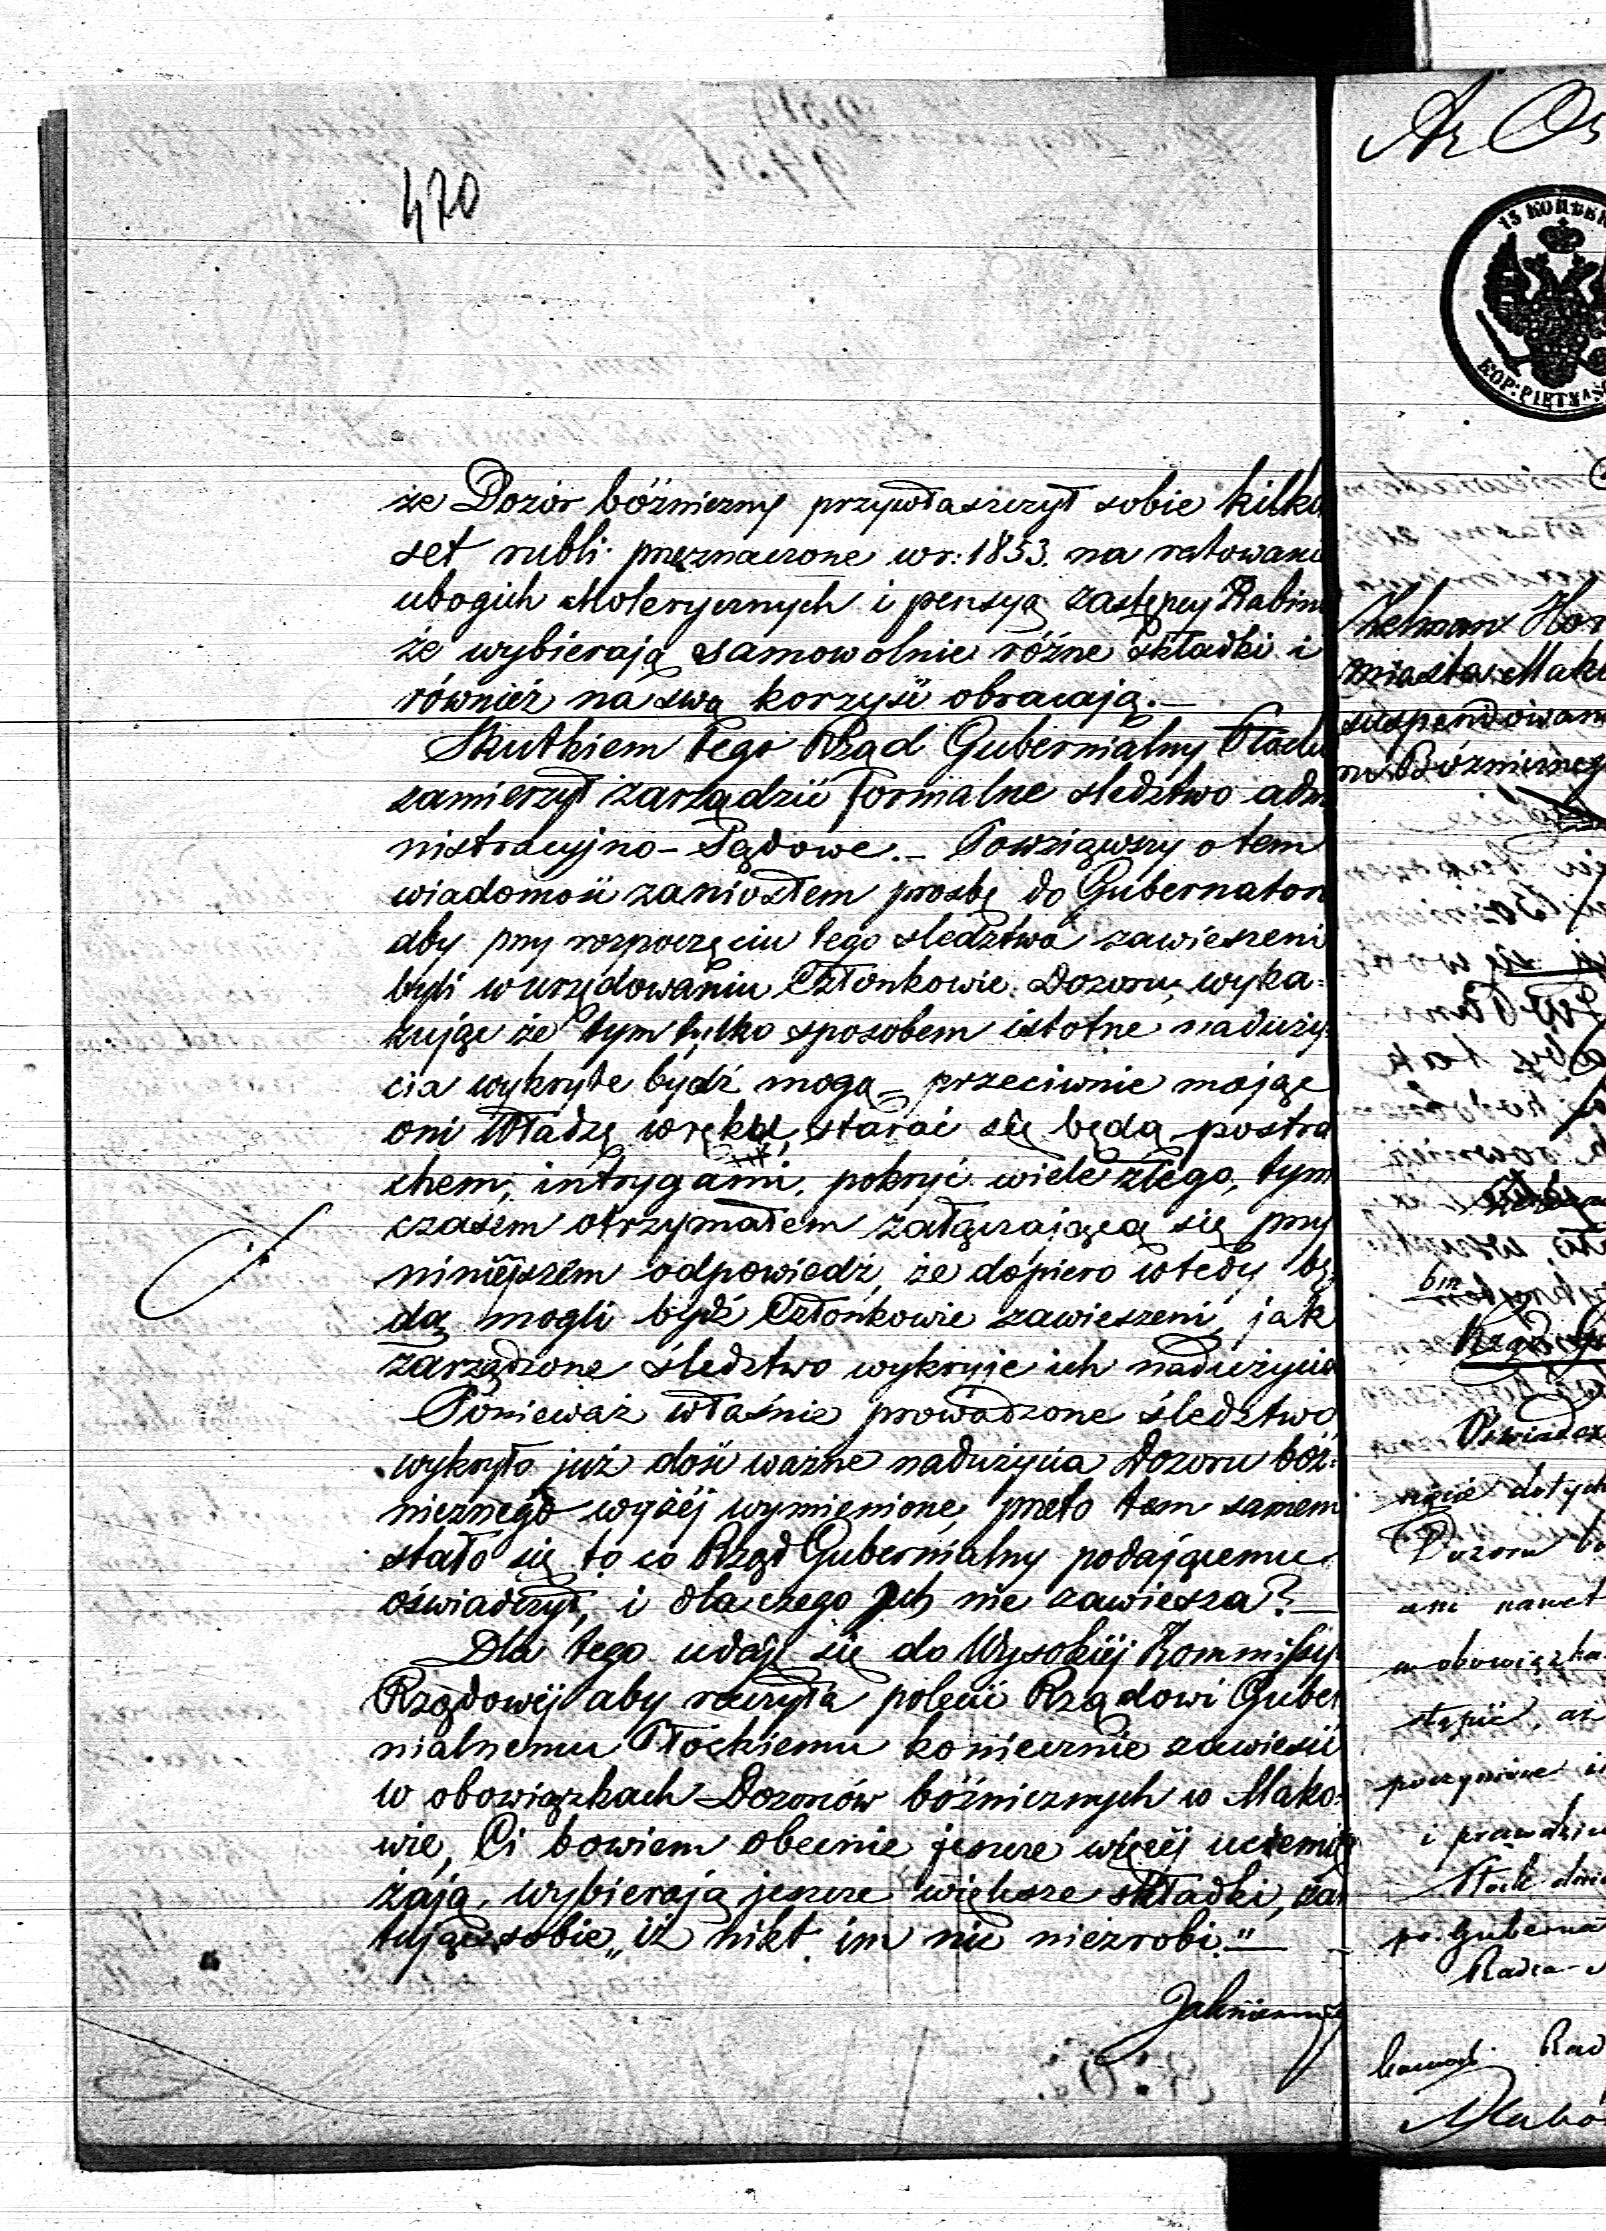 470
że Dozór bóźniczny przywłaszczył sobie kilka
set rubli przeznaczone w r: 1853. na ratowani
ubogich cholerycznych i pensyą zastępcy Rabina
że wybierają samowolnie różne składki i
również na swą korzyść obracają.—
Skutkiem tego Rząd Gubernialny Płocki
zamierzył zarządzić formalne śledztwo adm
nistracyjno-Sądowe.— Powziąwszy o tem
wiadomość zaniosłem prosbę do Gubernator
aby przy rozpoczęciu tego sledztwa zawieszeni
byli w urzędowaniu Członkowie Dozoru, wyka=
zując że tym tylko sposobem istotne naduży
cia wykryte bydź mogą – przeciwnie mając
oni Władzę w ręku, starać się będą postra
chem, intrygami, pokryć wiele złego, tym
czasem otrzymałem załączającą się przy
niniejszém odpowiedź, że dopiero wtedy bę
dą mogli bydź Członkowie zawieszeni, jak
zarządzone śledztwo wykryje ich nadużycia
Ponieważ właśnie prowadzone śledztwo
wykryło już dość ważne nadużycia Dozoru bóź=
nicznego wyżéj wymienione, przeto tem samem
stało się to co Rząd Gubernialny podającemu
oświadczył, i dla czego ich nie zawiesza?—
Dla tego udaję się do Wysokiéj Kommissyi
Rządowéj aby raczyła polecić Rządowi Guber
nialnemu Płockiemu koniecznie zawiesić
w obowiązkach Dozorców bóźnicznych w Mako=
wie, Ci bowiem obecnie jeszcze więcéj uciemię
żają, wybierają jeszcze większe składki, żar
tując sobie „iż nikt im nic niezrobi."—
15 КОПѢЕК
KOP: PIĘTNAŚ
miasta Mak
suspendowan
Rząd Gu
Oświadcz
dotych
Dozoru
ani nawet
w obowiązka
stąpić, aż
poczynione
i prawdziw
po. Guberna
Radca